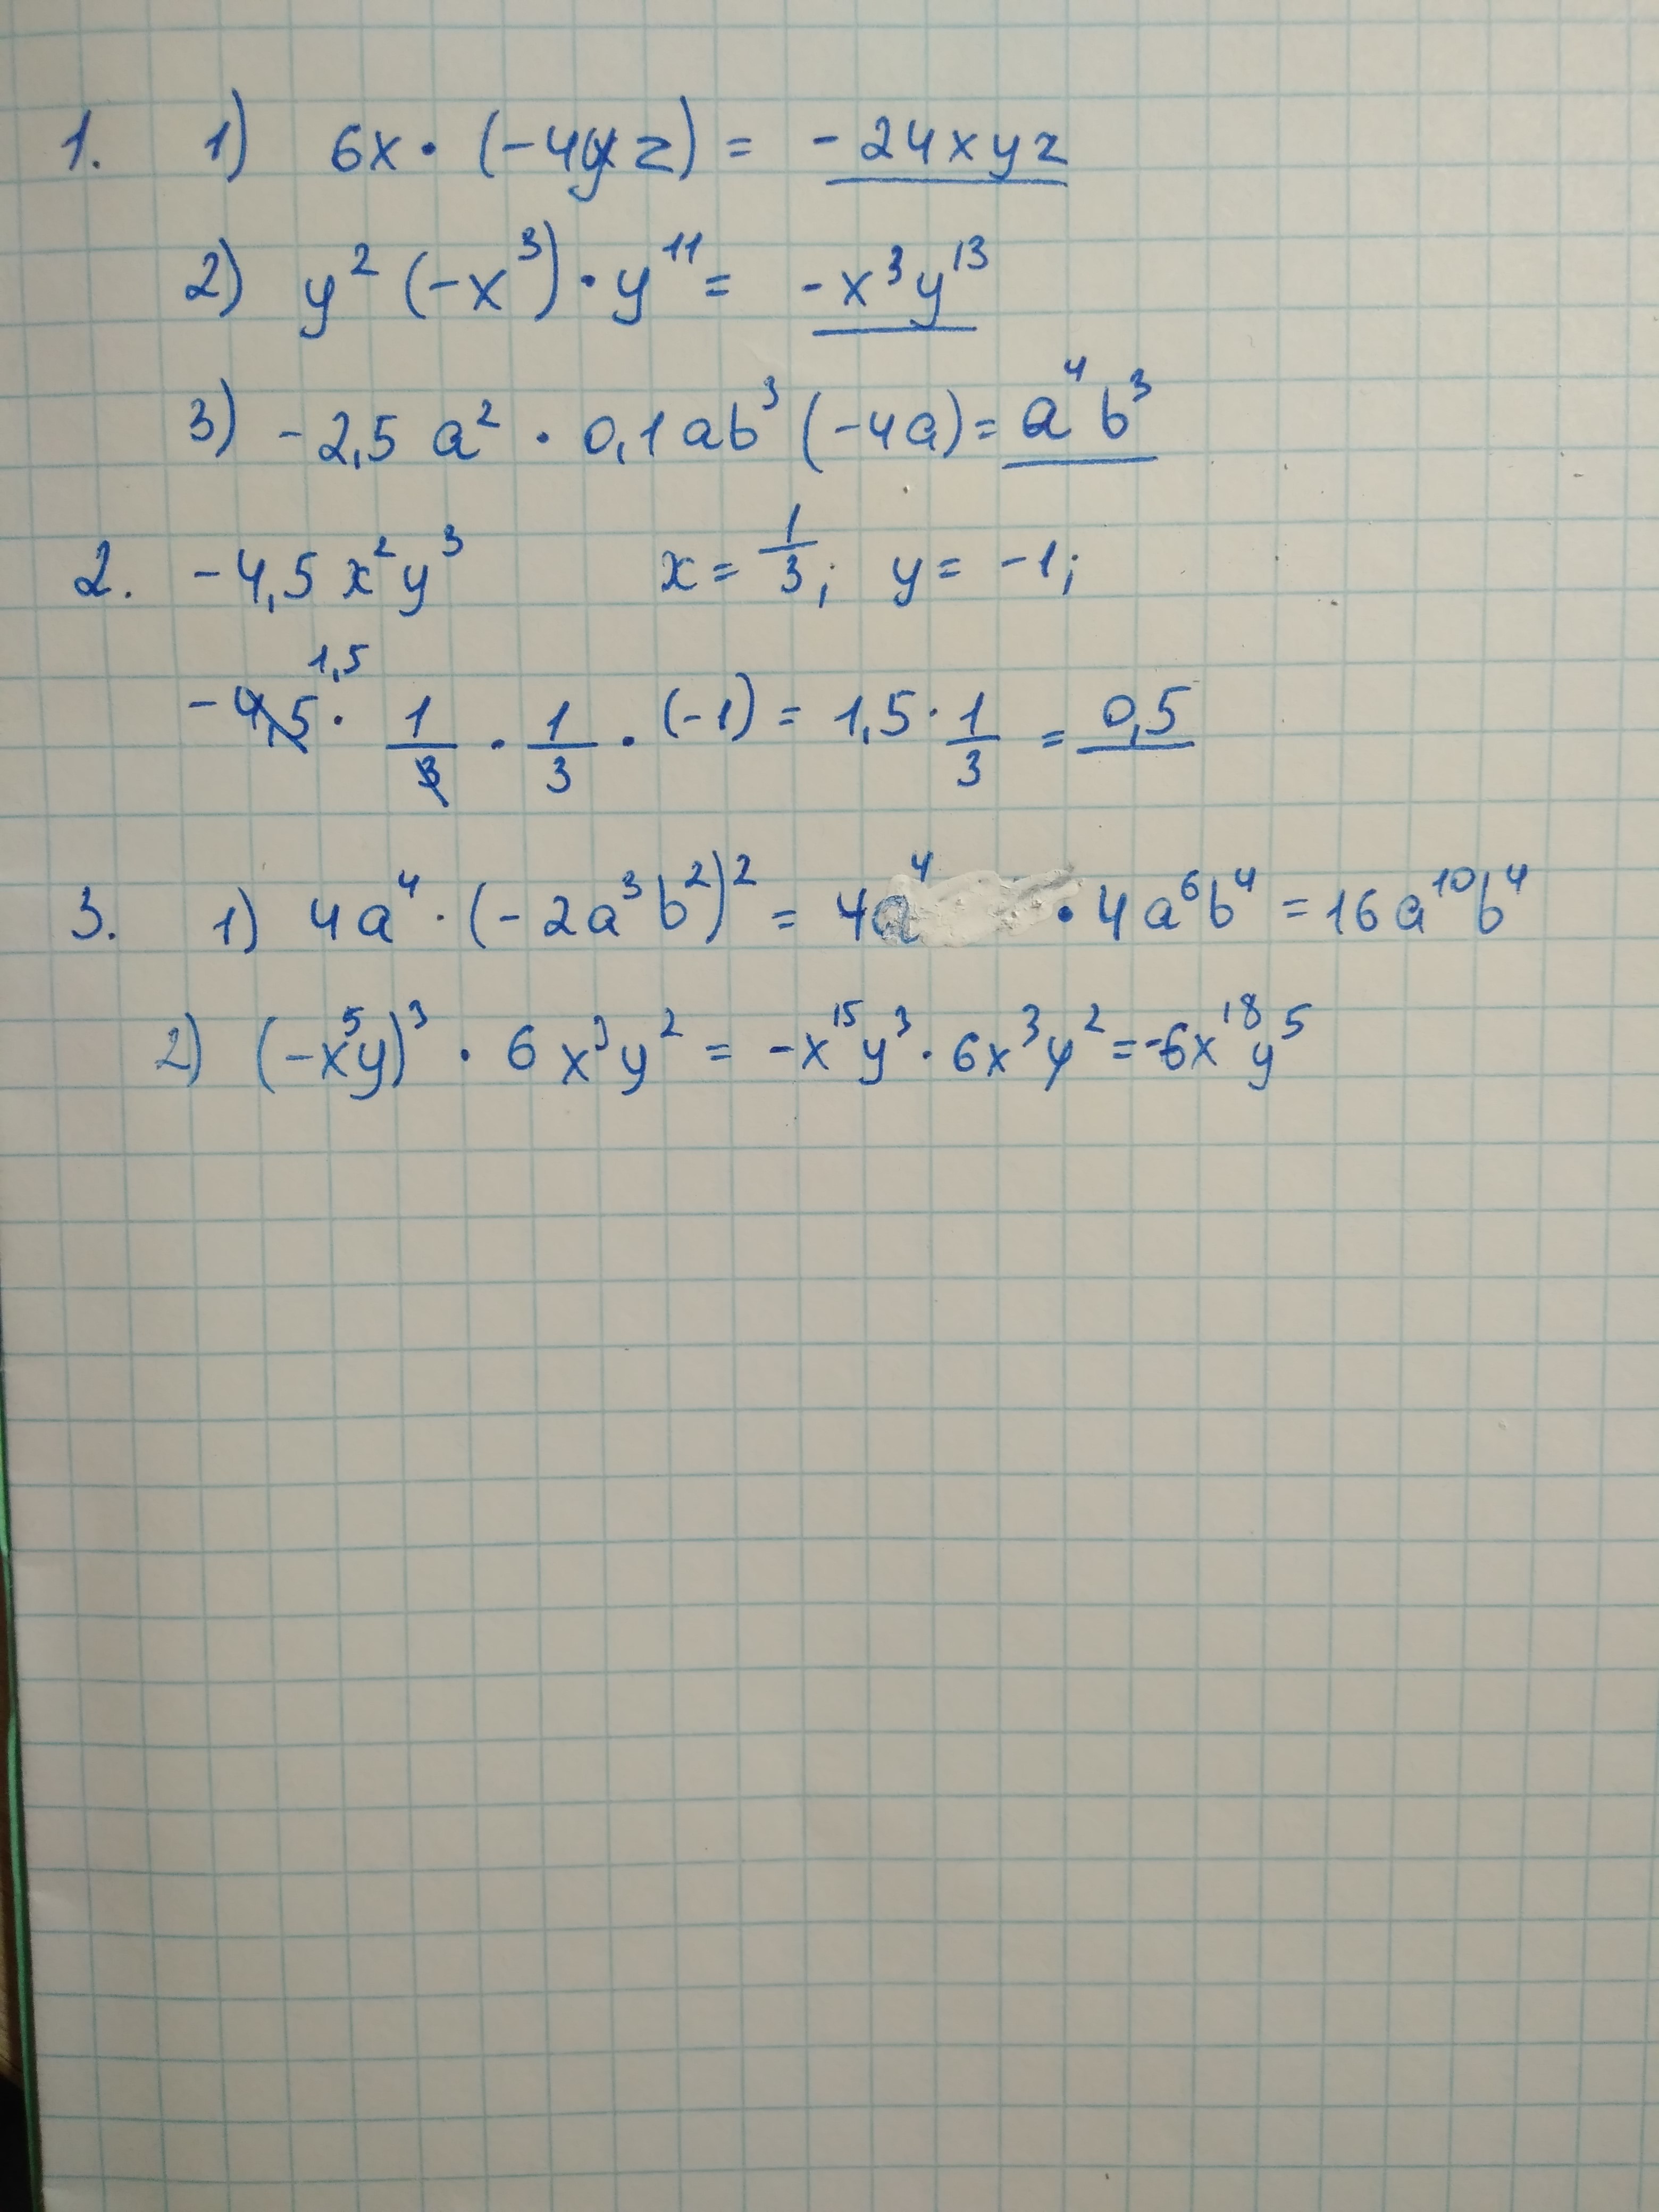 1. 1) 6x · (-4yz) = -24xyz
2) y² (-x³) · y¹¹ = -x³y¹³
3) -2,5 a² · 0,1 ab³ (-4a) = a⁴b³
2. -4,5 x²y³ x = 1/3; y = -1;
1,5
-4,5 · 1/3 · 1/3 · (-1) = 1,5 · 1/3 = 0,5
3. 1) 4a⁴ · (-2a³b²)² = 4a⁴ · 4a⁶b⁴ = 16a¹⁰b⁴
2) (-x⁵y)³ · 6x³y² = -x¹⁵y³ · 6x³y² = -6x¹⁸y⁵